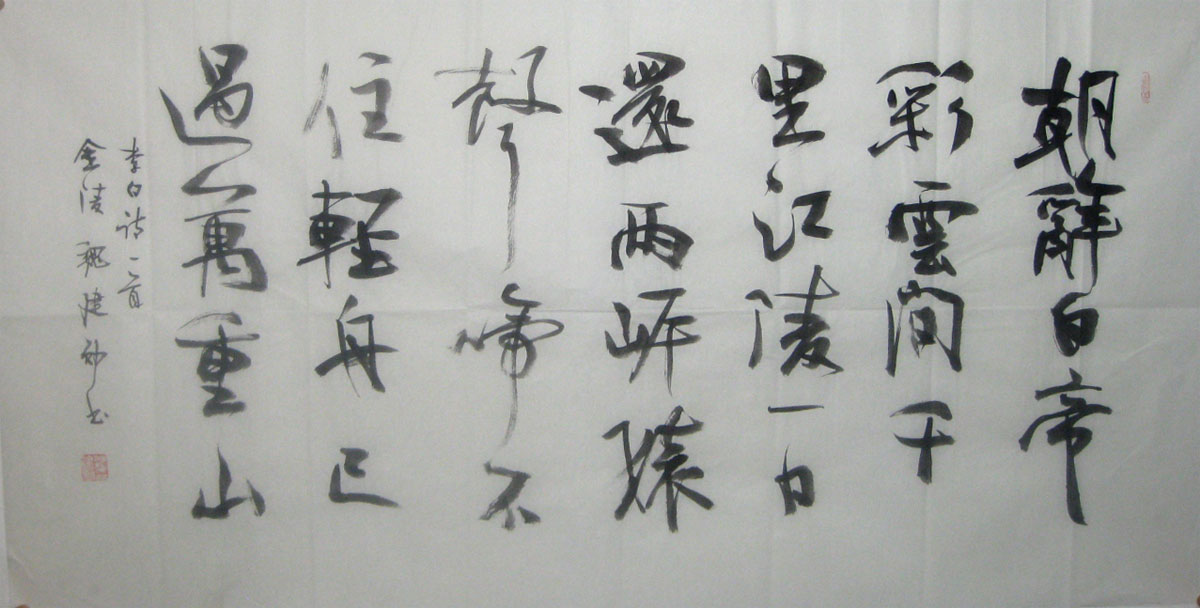 朝辭白帝
彩雲間千
里江陵一日
還兩岍猿
聲啼不
住輕舟已
過萬重山
李白詩一首
金陵魏